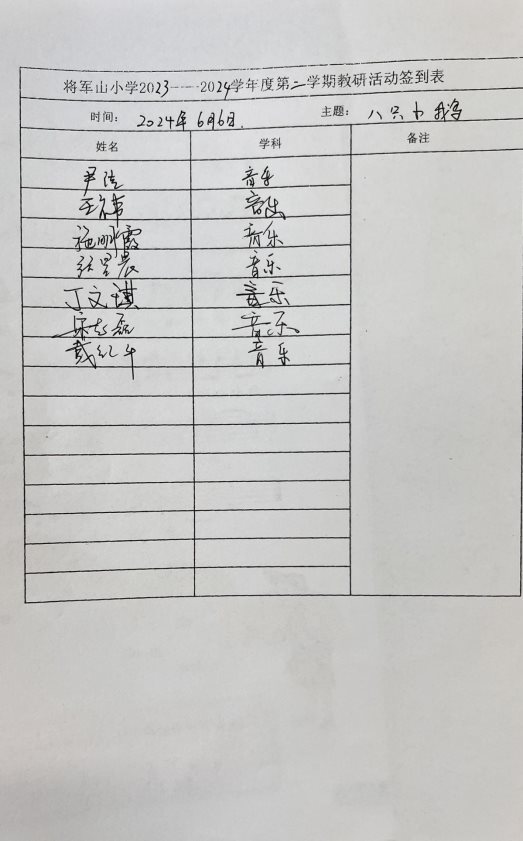 将军山小学2023----2024学年度第二学期教研活动签到表
时间： 2024年6月6日. 主题： 八只小鹅
姓名 学科 备注
尹佳 音乐
音乐
施明霞 音乐
音乐
丁文琪 音乐
音乐
戴红华 音乐